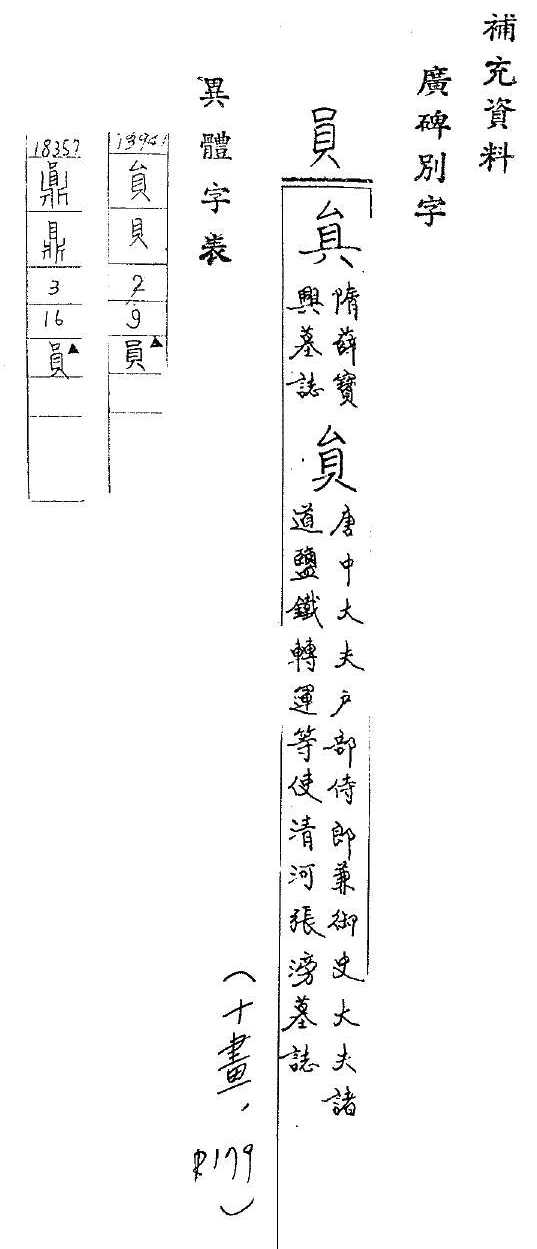 補充資料
廣碑別字
員
隋薛寶
興墓誌
貟
唐中大夫戶部侍郎兼御史大夫諸
道鹽鐵轉運等使清河張滂墓誌
(十畫,P179)
異體字表
貟
貝
2
9
員▲
18357
鼎
3
16
員▲